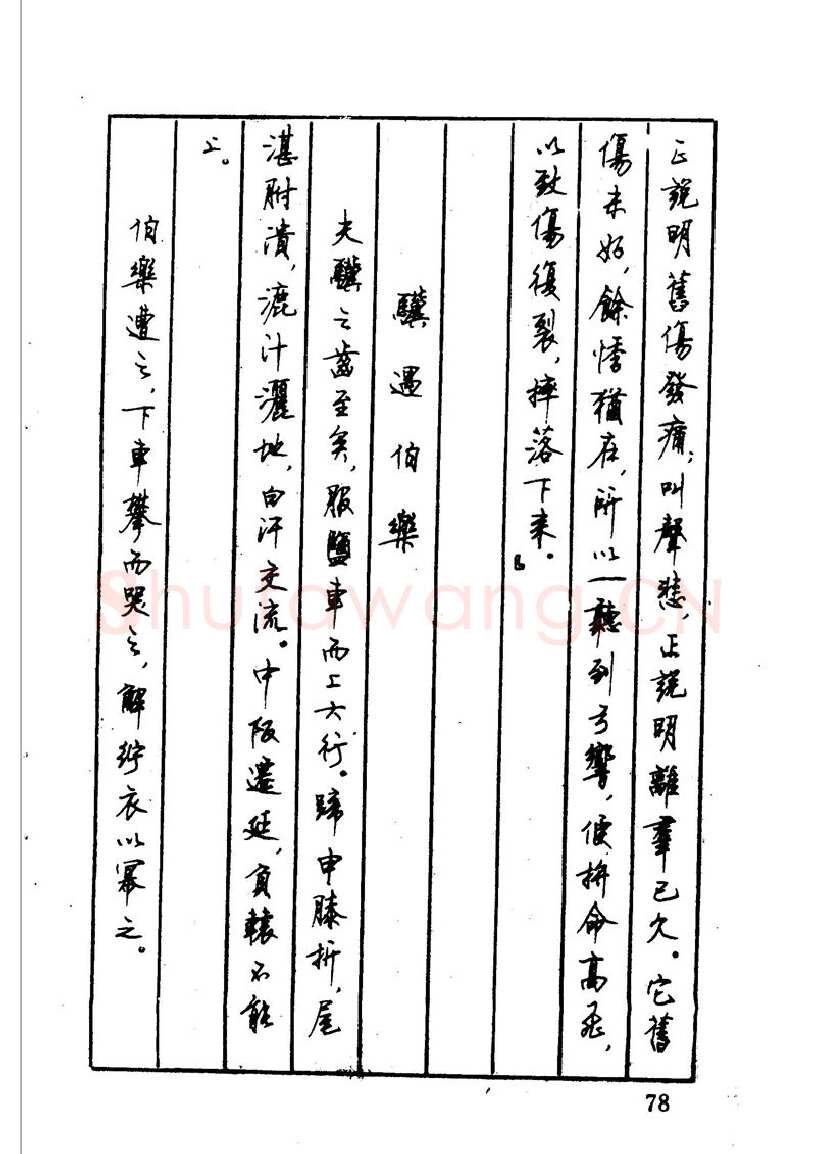 正說明舊傷發痛；叫聲悲，正說明離羣已久。它舊
傷未好，餘悸猶在，所以一聽到弓響，便拚命高飛，
以致傷復裂，摔落下來。」
驥遇伯樂
夫驥之齒至矣，服鹽車而上大行。蹄申膝折，尾
湛胕潰，漉汁灑地，白汗交流。中阪遷延，負轅不能
上。
伯樂遭之，下車攀而哭之，解紵衣以冪之。
Shufawang.CN
78